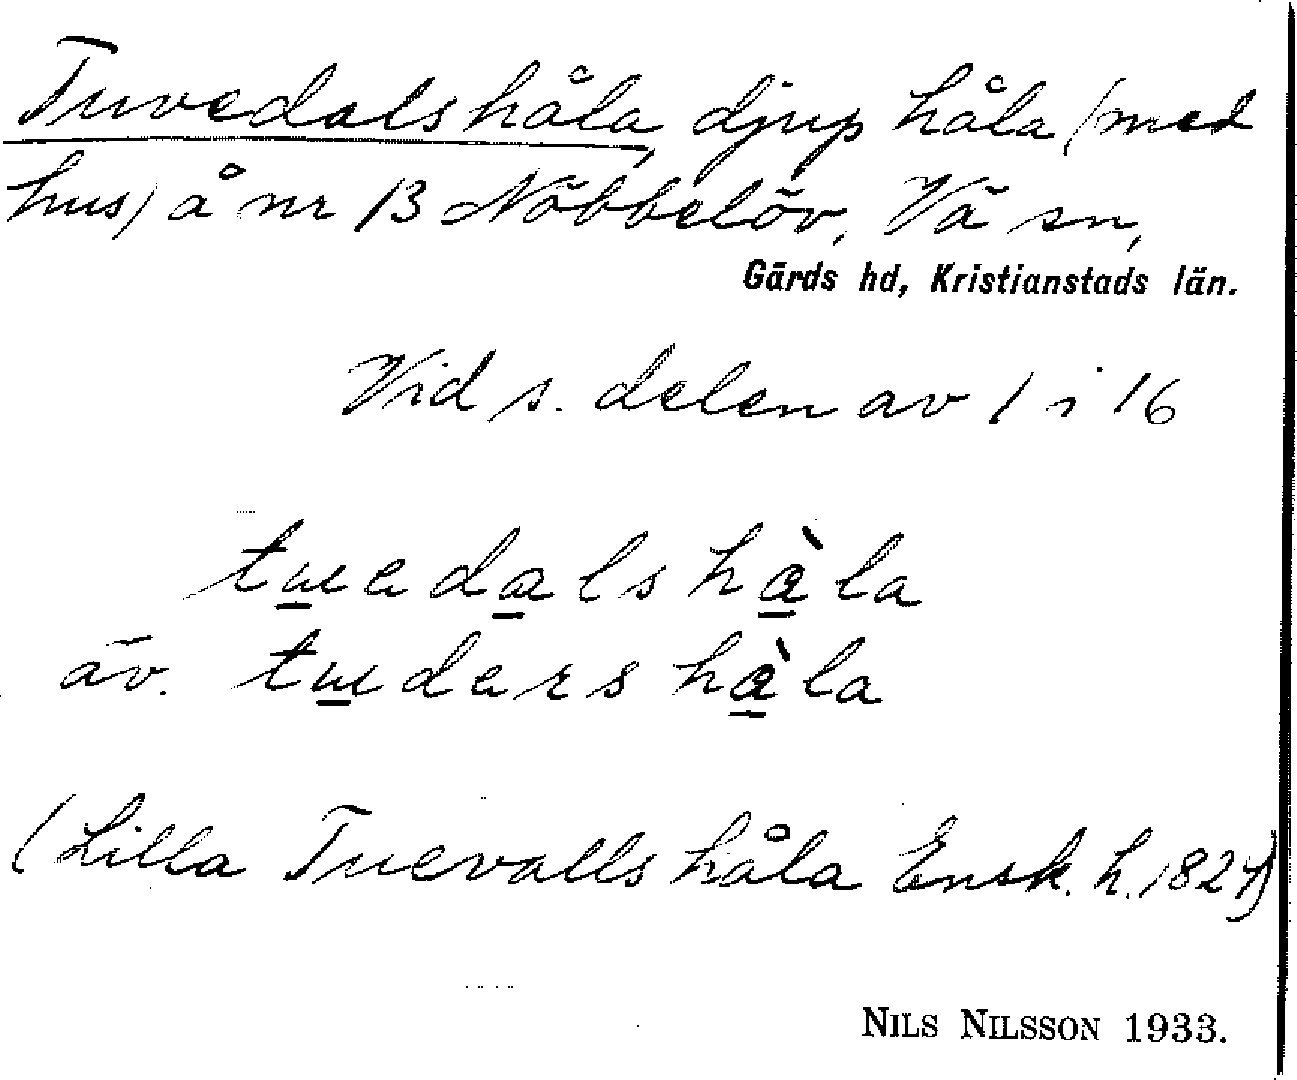 Tuvedalshåla, djup håla (med
hus) å nr 13 Nöbbelöv, Vä sn,
Gärds hd, Kristianstads län.
Vid s. delen av 1 i 16
tuedalshàla
äv. tudershàla
(Lilla Tuevallshåla Ensk. h. 1824)
NILS NILSSON 1933.